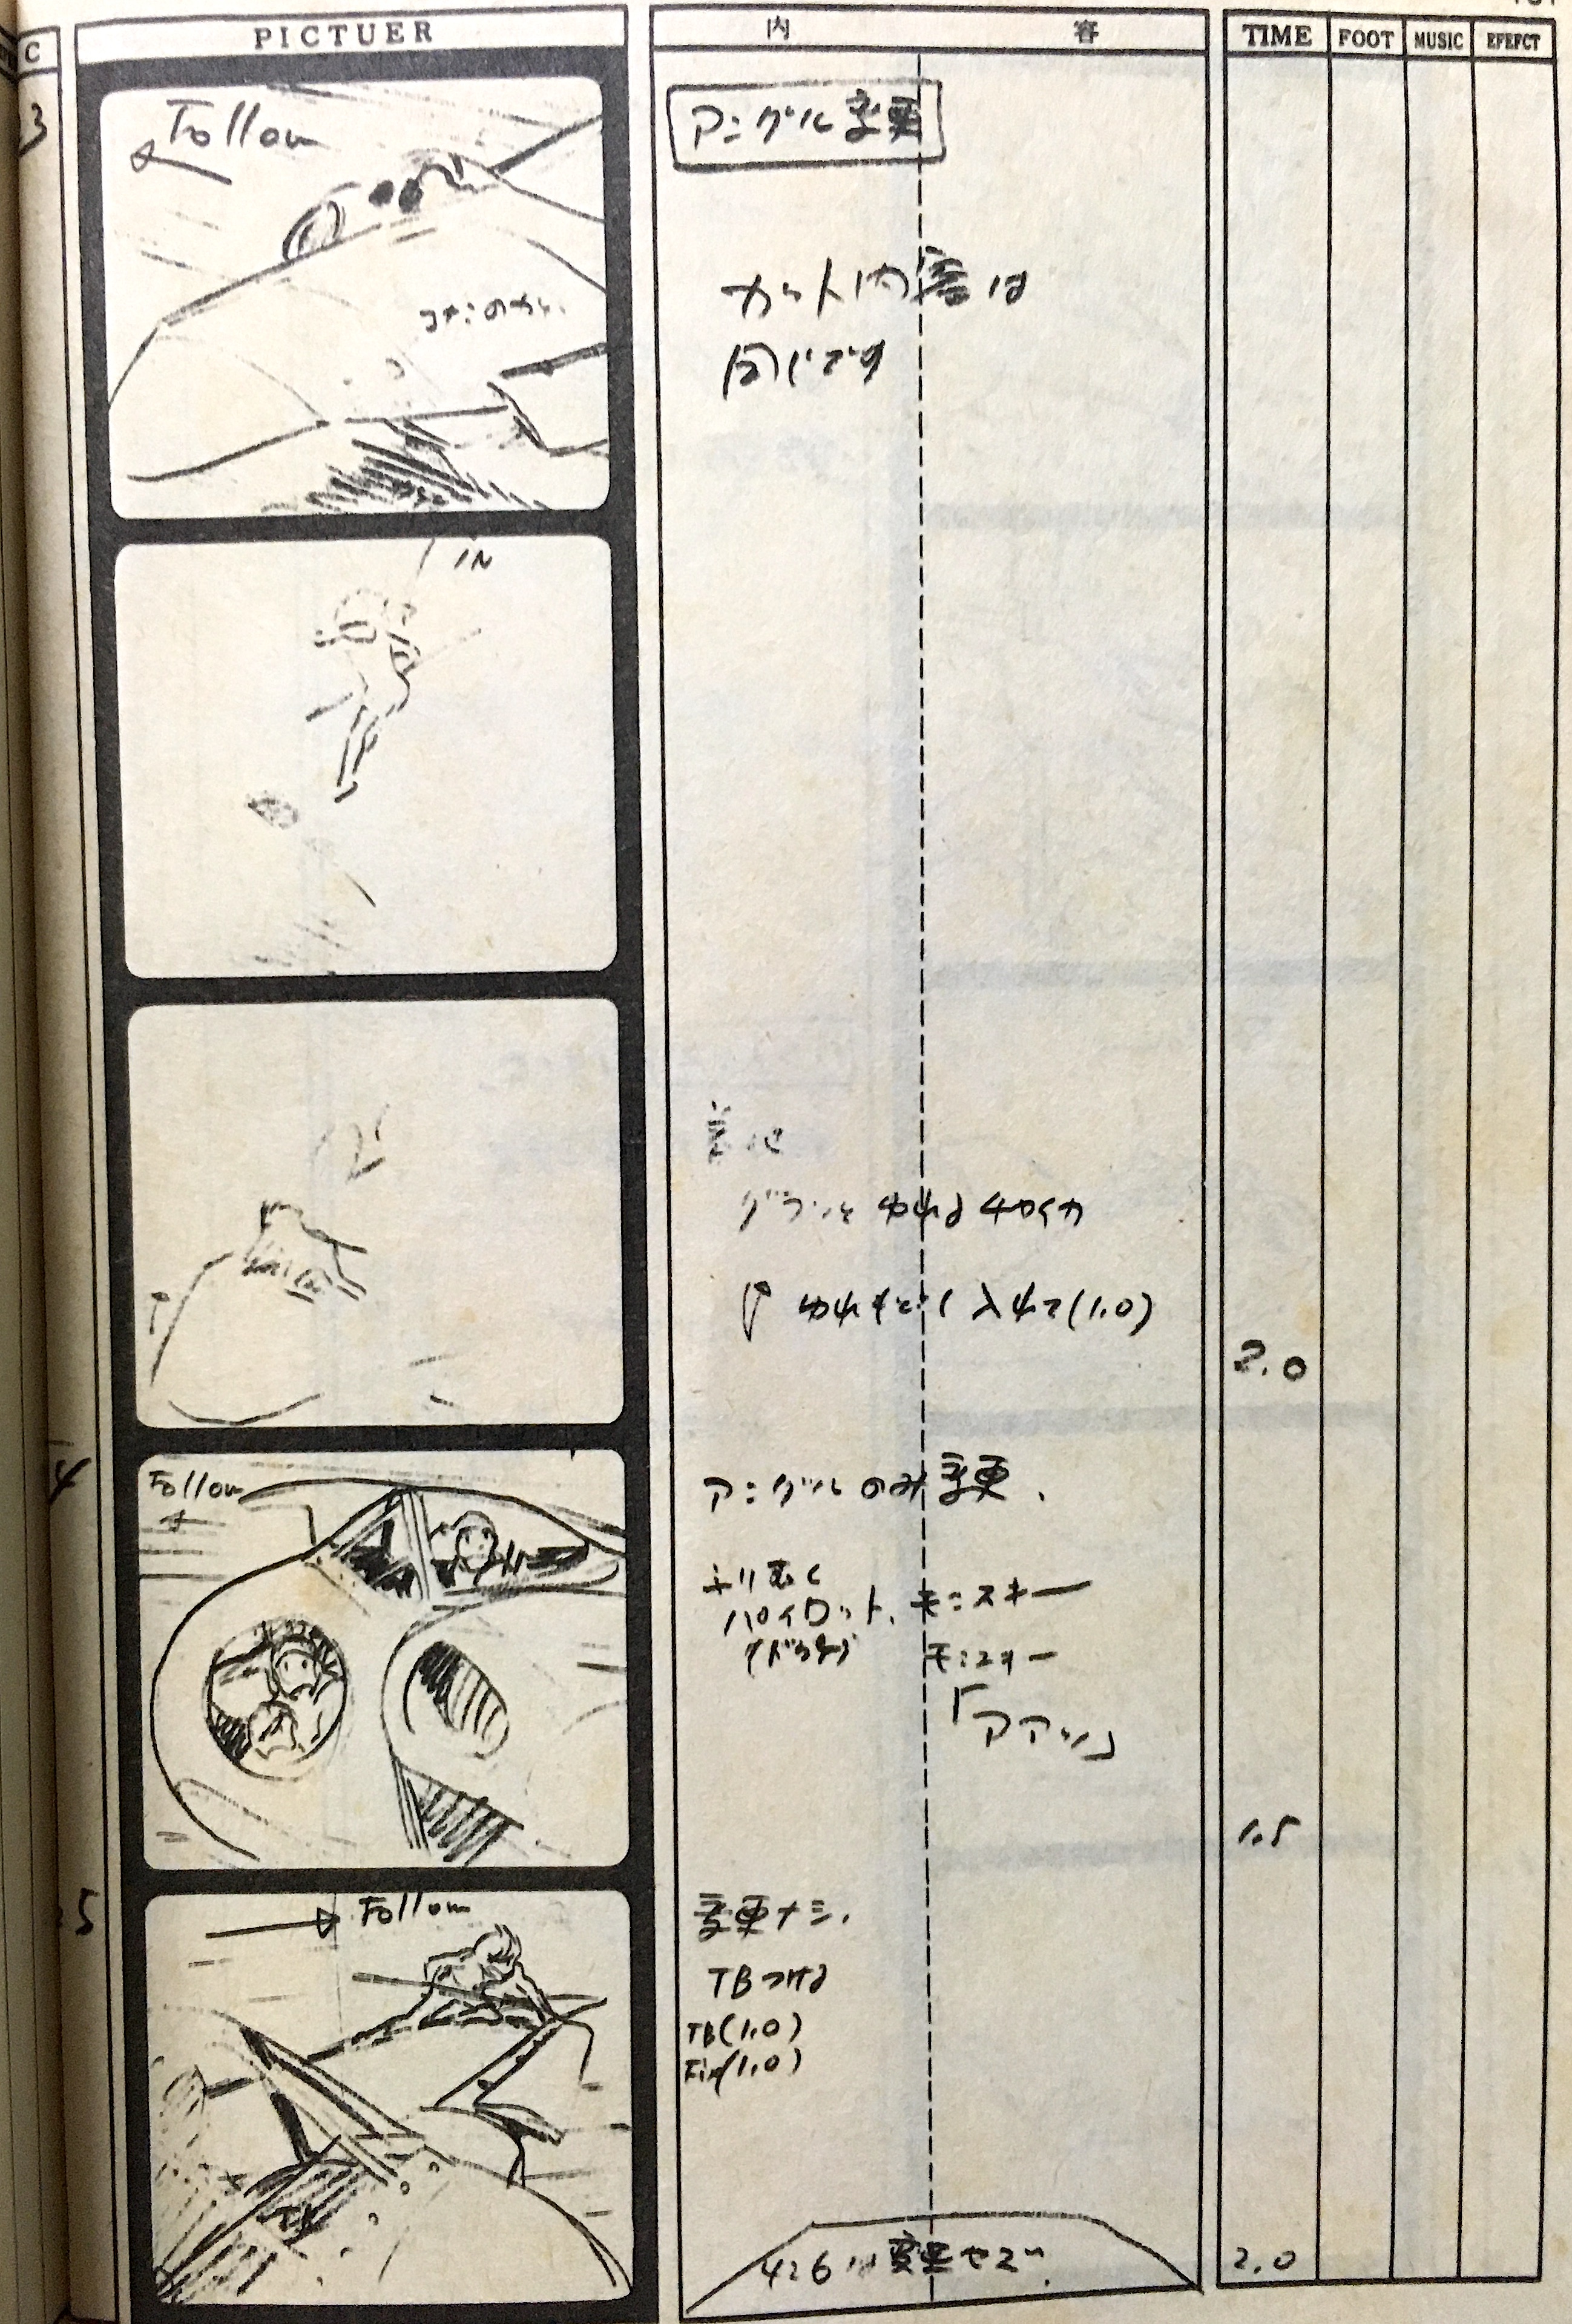 C
PICTUER
内容
TIME
FOOT
MUSIC
EFEFCT
3
Follow
アングル変更
カット内容は
同じです
コナンのカゲ
IN
着地
グラッとゆれるギガント
ゆれもどし入れて(1.0)
2.0
4
Follow
アングルのみ変更.
パイロット、モンスキー
モンスキー
「アアッ」
1.5
5
Follow
変更ナシ.
TBつける
TB(1.0)
Fix(1.0)
426は変更せず.
2.0